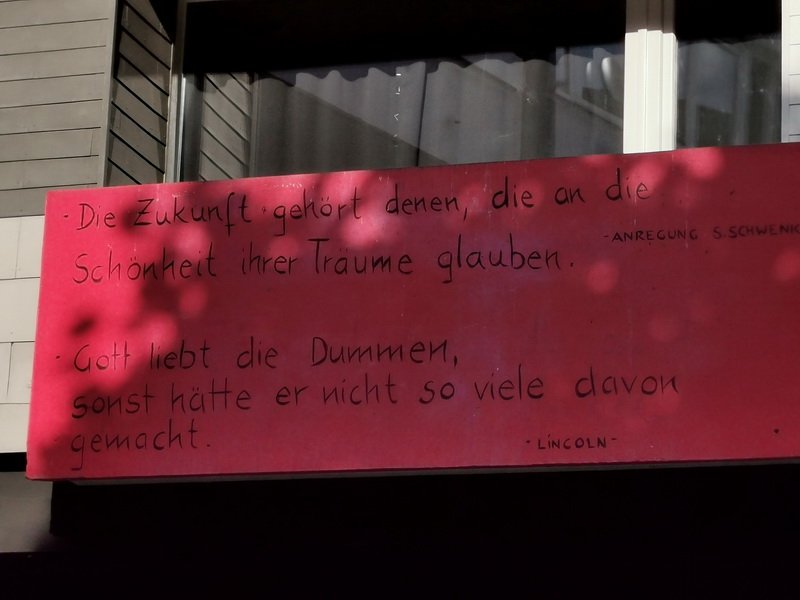 - Die Zukunft gehört denen, die an die
- ANREGUNG S. SCHWENK
Schönheit ihrer Träume glauben.
- Gott liebt die Dummen,
sonst hätte er nicht so viele davon
gemacht.
- LINCOLN -